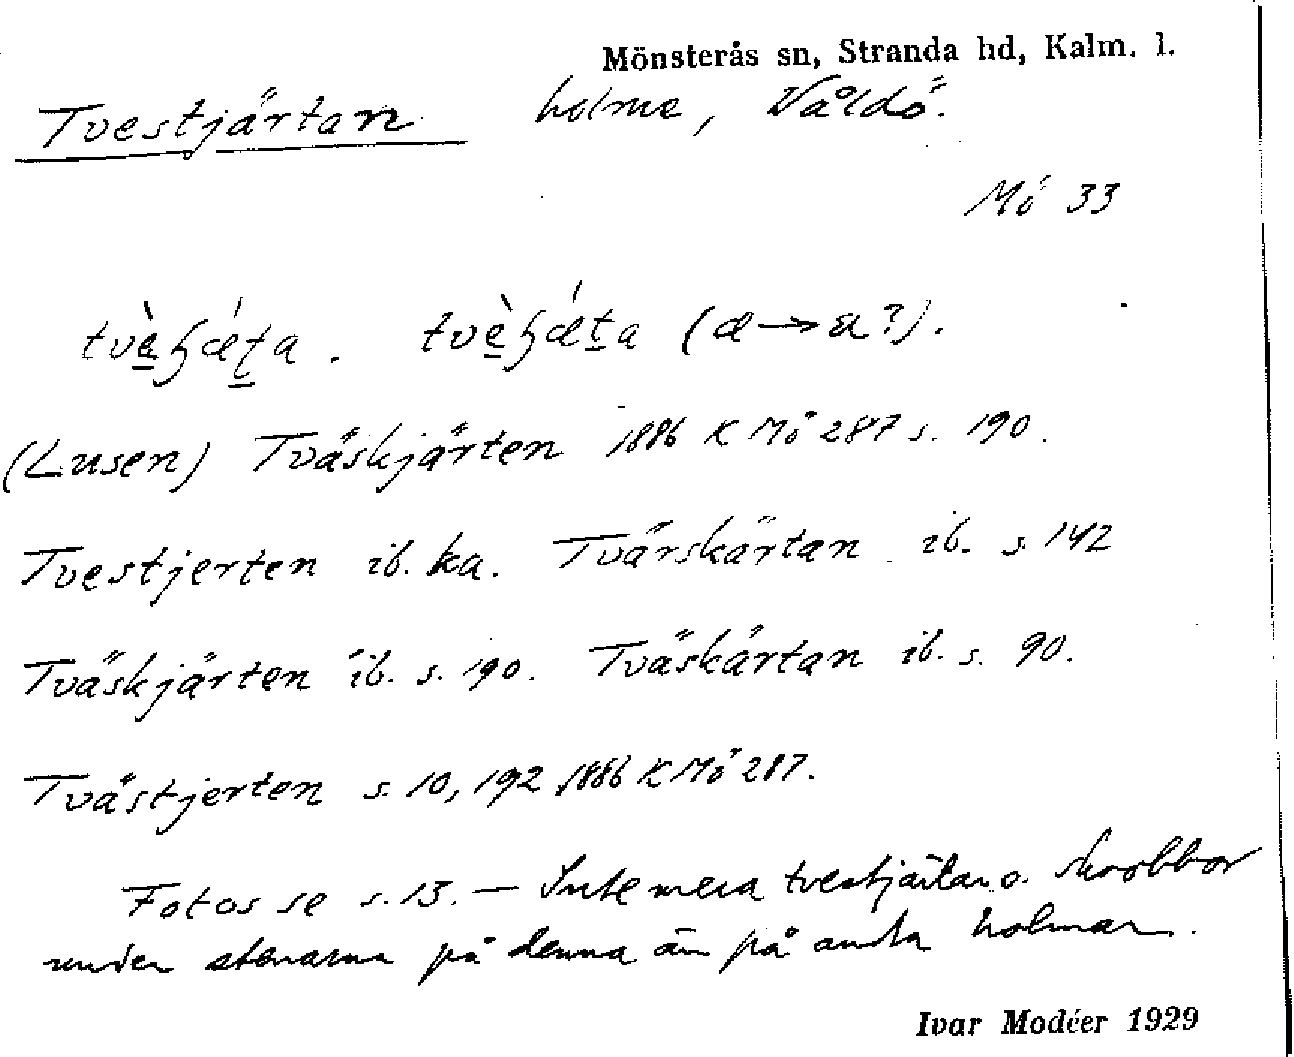 Mönsterås sn, Stranda hd, Kalm. l.
Tvestjärtan holme, Våldö.
Mö 33
(Lusen) Tväskjärten 1886 K Mö 287 s. 190.
Tvestjerten ib. ka. Tvärskärtan ib. s. 142
Tväskjärten ib. s. 190. Tväskärtan ib. s. 90.
Tvästjerten s. 10, 192 1886 K Mö 287.
Fotos se s. 13. — Inte mera tvestjärtar o. skrobbor
under stenarna på denna än på andra holmar.
Ivar Modéer 1929